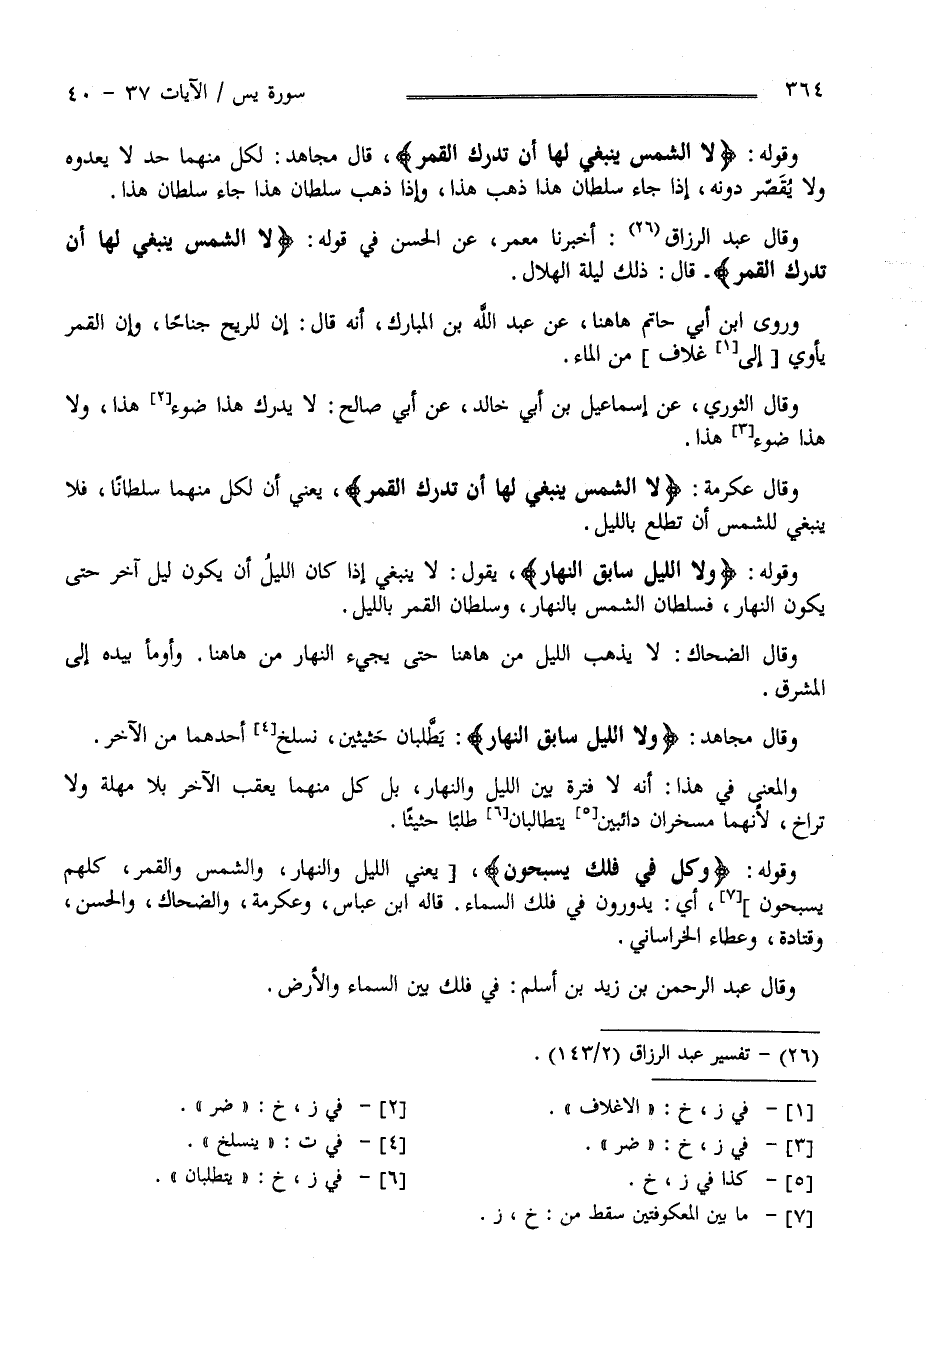 ٣٦٤ سورة يس / الآيات ٣٧ - ٤٠
وقوله : ﴿لا الشمس ينبغي لها أن تدرك القمر﴾ ، قال مجاهد : لكل منهما حد لا يعدوه
ولا يُقَصّر دونه ، إذا جاء سلطان هذا ذهب هذا ، وإذا ذهب سلطان هذا جاء سلطان هذا .
وقال عبد الرزاق(٢٦) : أخبرنا معمر، عن الحسن في قوله : ﴿لا الشمس ينبغي لها أن
تدرك القمر﴾. قال : ذلك ليلة الهلال .
وروى ابن أبي حاتم هاهنا ، عن عبد الله بن المبارك ، أنه قال : إن للريح جناحًا ، وإن القمر
يأوي [ إلى[١] غلاف ] من الماء .
وقال الثوري ، عن إسماعيل بن أبي خالد ، عن أبي صالح : لا يدرك هذا ضوء[٢] هذا ، ولا
هذا ضوء[٣] هذا .
وقال عكرمة : ﴿لا الشمس ينبغي لها أن تدرك القمر﴾ ، يعني أن لكل منهما سلطانًا ، فلا
ينبغي للشمس أن تطلع بالليل .
وقوله : ﴿ولا الليل سابق النهار﴾ ، يقول : لا ينبغي إذا كان الليلُ أن يكون ليل آخر حتى
يكون النهار ، فسلطان الشمس بالنهار ، وسلطان القمر بالليل .
وقال الضحاك : لا يذهب الليل من هاهنا حتى يجيء النهار من هاهنا . وأومأ بيده إلى
المشرق .
وقال مجاهد : ﴿ولا الليل سابق النهار﴾ : يَطَّلبان حَثيثين ، نسلخ[٤] أحدهما من الآخر .
والمعنى في هذا : أنه لا فترة بين الليل والنهار ، بل كل منهما يعقب الآخر بلا مهلة ولا
تراخ ، لأنهما مسخران دائبين[٥] يتطالبان[٦] طلبًا حثيثًا .
وقوله : ﴿وكل في فلك يسبحون﴾ ، [ يعني الليل والنهار ، والشمس والقمر ، كلهم
يسبحون ][٧] ، أي : يدورون في فلك السماء . قاله ابن عباس ، وعكرمة ، والضحاك ، والحسن ،
وقتادة ، وعطاء الخراساني .
وقال عبد الرحمن بن زيد بن أسلم : في فلك بين السماء والأرض .
(٢٦) - تفسير عبد الرزاق (١٤٣/٢) .
[١] - في ز ، خ : « الاغلاف » . [٢] - في ز ، خ : « ضر » .
[٣] - في ز ، خ : « ضر » . [٤] - في ت : « ينسلخ » .
[٥] - كذا في ز ، خ . [٦] - في ز ، خ : « يتطلبان » .
[٧] - ما بين المعكوفتين سقط من : خ ، ز .